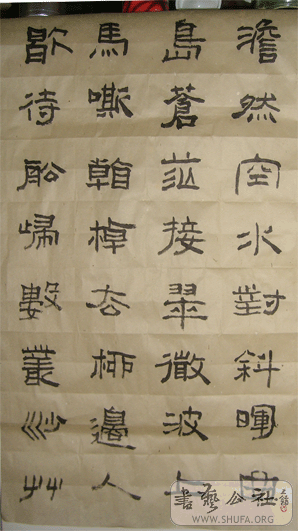 澹然空水對斜暉曲
島蒼茫接翠微波上
馬嘶看棹去柳邊人
歇待船歸數叢沙艸
書藝公社
WWW.SHUFA.ORG